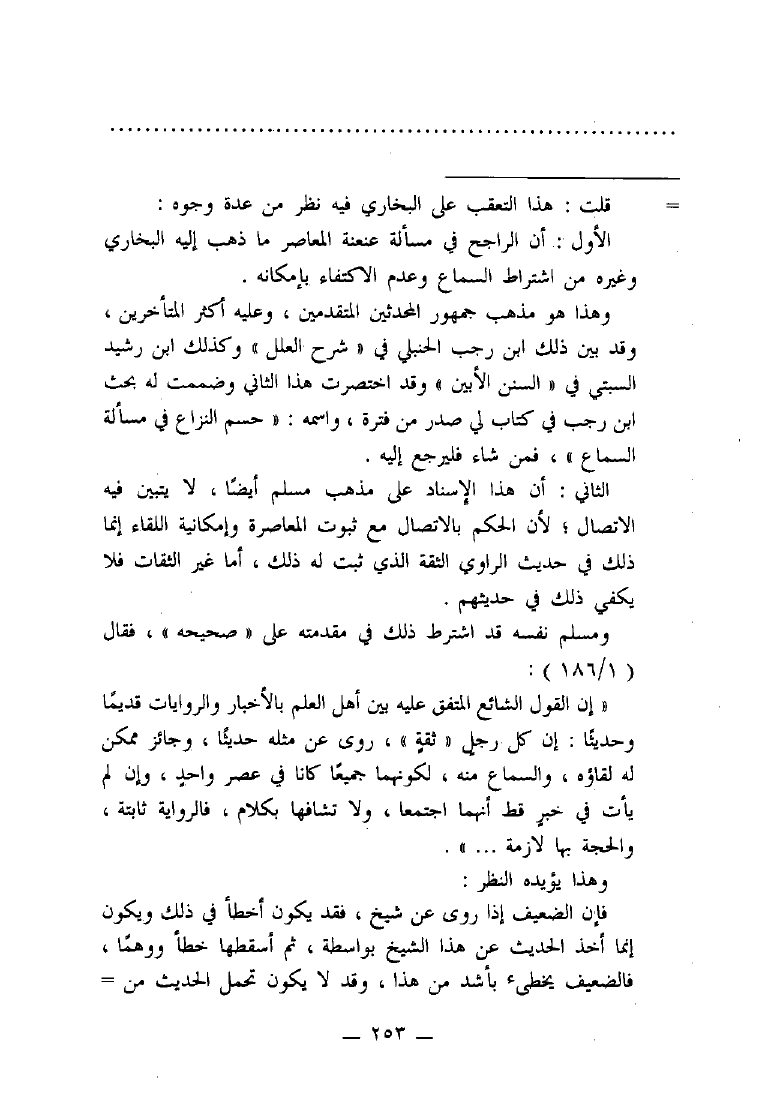 ................................................................
= قلت : هذا التعقب على البخاري فيه نظر من عدة وجوه :
الأول : أن الراجح في مسألة عنعنة المعاصر ما ذهب إليه البخاري
وغيره من اشتراط السماع وعدم الاكتفاء بإمكانه .
وهذا هو مذهب جمهور المحدثين المتقدمين ، وعليه أكثر المتأخرين ،
وقد بين ذلك ابن رجب الحنبلي في « شرح العلل » وكذلك ابن رشيد
السبتي في « السنن الأبين » وقد اختصرت هذا الثاني وضممت له بحث
ابن رجب في كتاب لي صدر من فترة ، واسمه : « حسم النزاع في مسألة
السماع » ، فمن شاء فليرجع إليه .
الثاني : أن هذا الإسناد على مذهب مسلم أيضًا ، لا يتبين فيه
الاتصال ؛ لأن الحكم بالاتصال مع ثبوت المعاصرة وإمكانية اللقاء إنما
ذلك في حديث الراوي الثقة الذي ثبت له ذلك ، أما غير الثقات فلا
يكفي ذلك في حديثهم .
ومسلم نفسه قد اشترط ذلك في مقدمته على « صحيحه » ، فقال
( ١٨٦/١ ) :
« إن القول الشائع المتفق عليه بين أهل العلم بالأخبار والروايات قديمًا
وحديثًا : إن كل رجلٍ « ثقةٍ » ، روى عن مثله حديثًا ، وجائز ممكن
له لقاؤه ، والسماع منه ، لكونهما جميعًا كانا في عصر واحدٍ ، وإن لم
يأت في خبرٍ قط أنهما اجتمعا ، ولا تشافها بكلام ، فالرواية ثابتة ،
والحجة بها لازمة ... » .
وهذا يؤيده النظر :
فإن الضعيف إذا روى عن شيخ ، فقد يكون أخطأ في ذلك ويكون
إنما أخذ الحديث عن هذا الشيخ بواسطة ، ثم أسقطها خطأ ووهمًا ،
فالضعيف يخطىء بأشد من هذا ، وقد لا يكون تحمل الحديث من =
— ٢٥٣ —